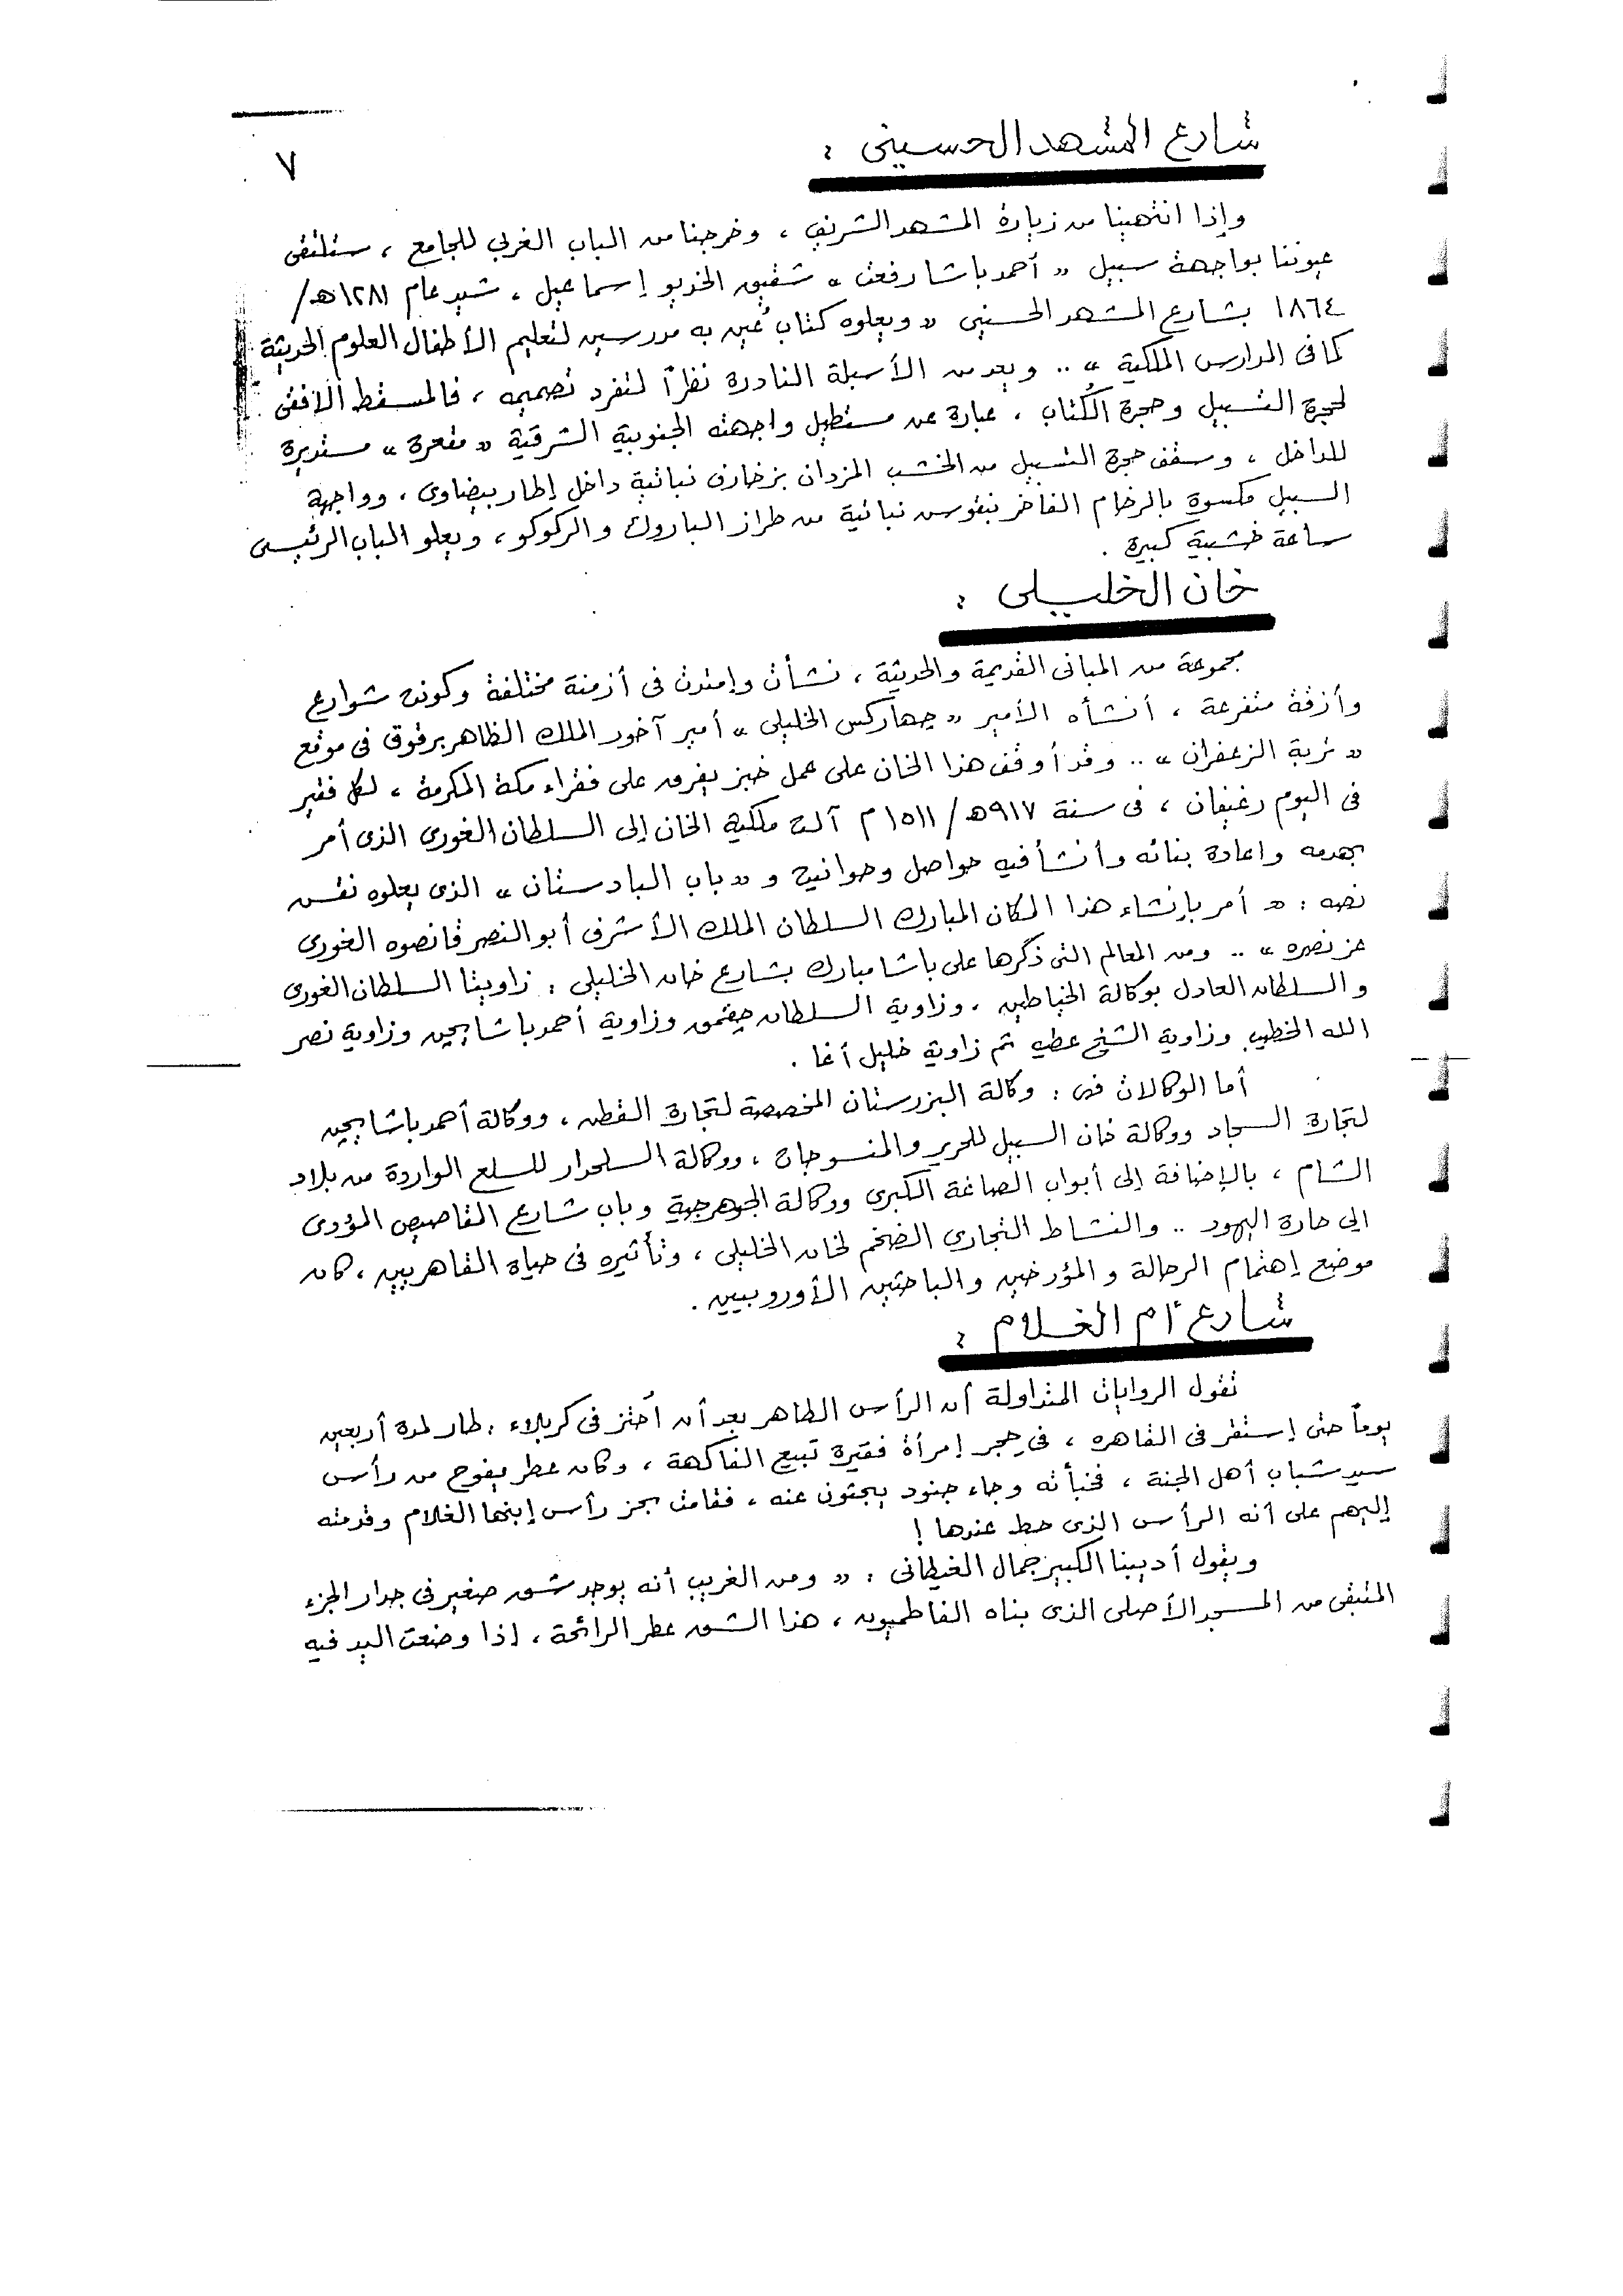 ٧
شارع المشهد الحسينى :
وإذا انتهينا من زيارة المشهد الشريف ، وخرجنا من الباب الغربى للجامع ، ستلتقى
عيوننا بواجهة سبيل « أحمد باشا رفعت » شقيق الخديو إسماعيل ، شيد عام ١٢٨١هـ/
١٨٦٤ بشارع المشهد الحسينى « ويعلوه كتاب عُين به مدرسين لتعليم الأطفال العلوم الحديثة
كما فى المدارس الملكية » .. ويعد من الأسبلة النادرة نظراً لتفرد تصميمه ، فالمسقط الأفقى
لحجرة التسبيل وحجرة الكُتاب ، عبارة عن مستطيل واجهته الجنوبية الشرقية « مقعرة » مستديرة
للداخل ، وسقف حجرة التسبيل من الخشب المزدان بزخارف نباتية داخل إطار بيضاوى ، وواجهة
السبيل مكسوة بالرخام الفاخر بنقوش نباتية من طراز الباروك والركوكو ، ويعلو الباب الرئيسى
ساعة خشبية كبيرة .
خان الخليلى :
مجموعة من المبانى القديمة والحديثة ، نشأت وإمتدت فى أزمنة مختلفة وكونت شوارع
وأزقة متفرعة ، أنشأه الأمير « جهاركس الخليلى » أمير آخور الملك الظاهر برقوق فى موقع
« تربة الزعفران » .. وقد أوقف هذا الخان على عمل خبز يفرق على فقراء مكة المكرمة ، لكل فقير
فى اليوم رغيفان ، فى سنة ٩١٧هـ/ ١٥١١م آلت ملكية الخان إلى السلطان الغورى الذى أمر
بهدمه وإعادة بنائه وأنشأ فيه حواصل وحوانيت و « باب البادستان » الذى يعلوه نقش
نصه : « أمر بإنشاء هذا المكان المبارك السلطان الملك الأشرف أبو النصر قانصوه الغورى
عز نصره » .. ومن المعالم التى ذكرها على باشا مبارك بشارع خان الخليلى : زاويتا السلطان الغورى
والسلطان العادل بوكالة الخياطين ، وزاوية السلطان جقمق وزاوية أحمد باشا يجن وزاوية نصر
الله الخطيب وزاوية الشيخ عطيه ثم زاوية خليل أغا .
أما الوكالات فهى : وكالة البزرستان المخصصة لتجارة القطن ، ووكالة أحمد باشا يجن
لتجارة السجاد ووكالة خان السبيل للحرير والمنسوجات ، ووكالة السلحدار للسلع الواردة من بلاد
الشام ، بالإضافة إلى أبواب الصاغة الكبرى ووكالة الجوهرجية وباب شارع المقاصيص المؤدى
إلى حارة اليهود .. والنشاط التجارى الضخم لخان الخليلى ، وتأثيره فى حياة القاهريين ، كان
موضع إهتمام الرحالة والمؤرخين والباحثين الأوروبيين .
شارع أم الغلام :
تقول الروايات المتداولة أن الرأس الطاهر بعد أن اُحتز فى كربلاء ، طار لمدة أربعين
يوماً حتى إستقر فى القاهره ، فى حِجر إمرأة فقيرة تبيع الفاكهة ، وكان عطر يفوح من رأس
سيد شباب أهل الجنة ، فخبأته وجاء جنود يبحثون عنه ، فقامت بحز رأس إبنها الغلام وقدمته
إليهم على أنه الرأس الذى حط عندها !
ويقول أديبنا الكبير جمال الغيطانى : « ومن الغريب أنه يوجد شق صغير فى جدار الجزء
المتبقى من المسجد الأصلى الذى بناه الفاطميون ، هذا الشق عطر الرائحة ، إذا وضعت اليد فيه